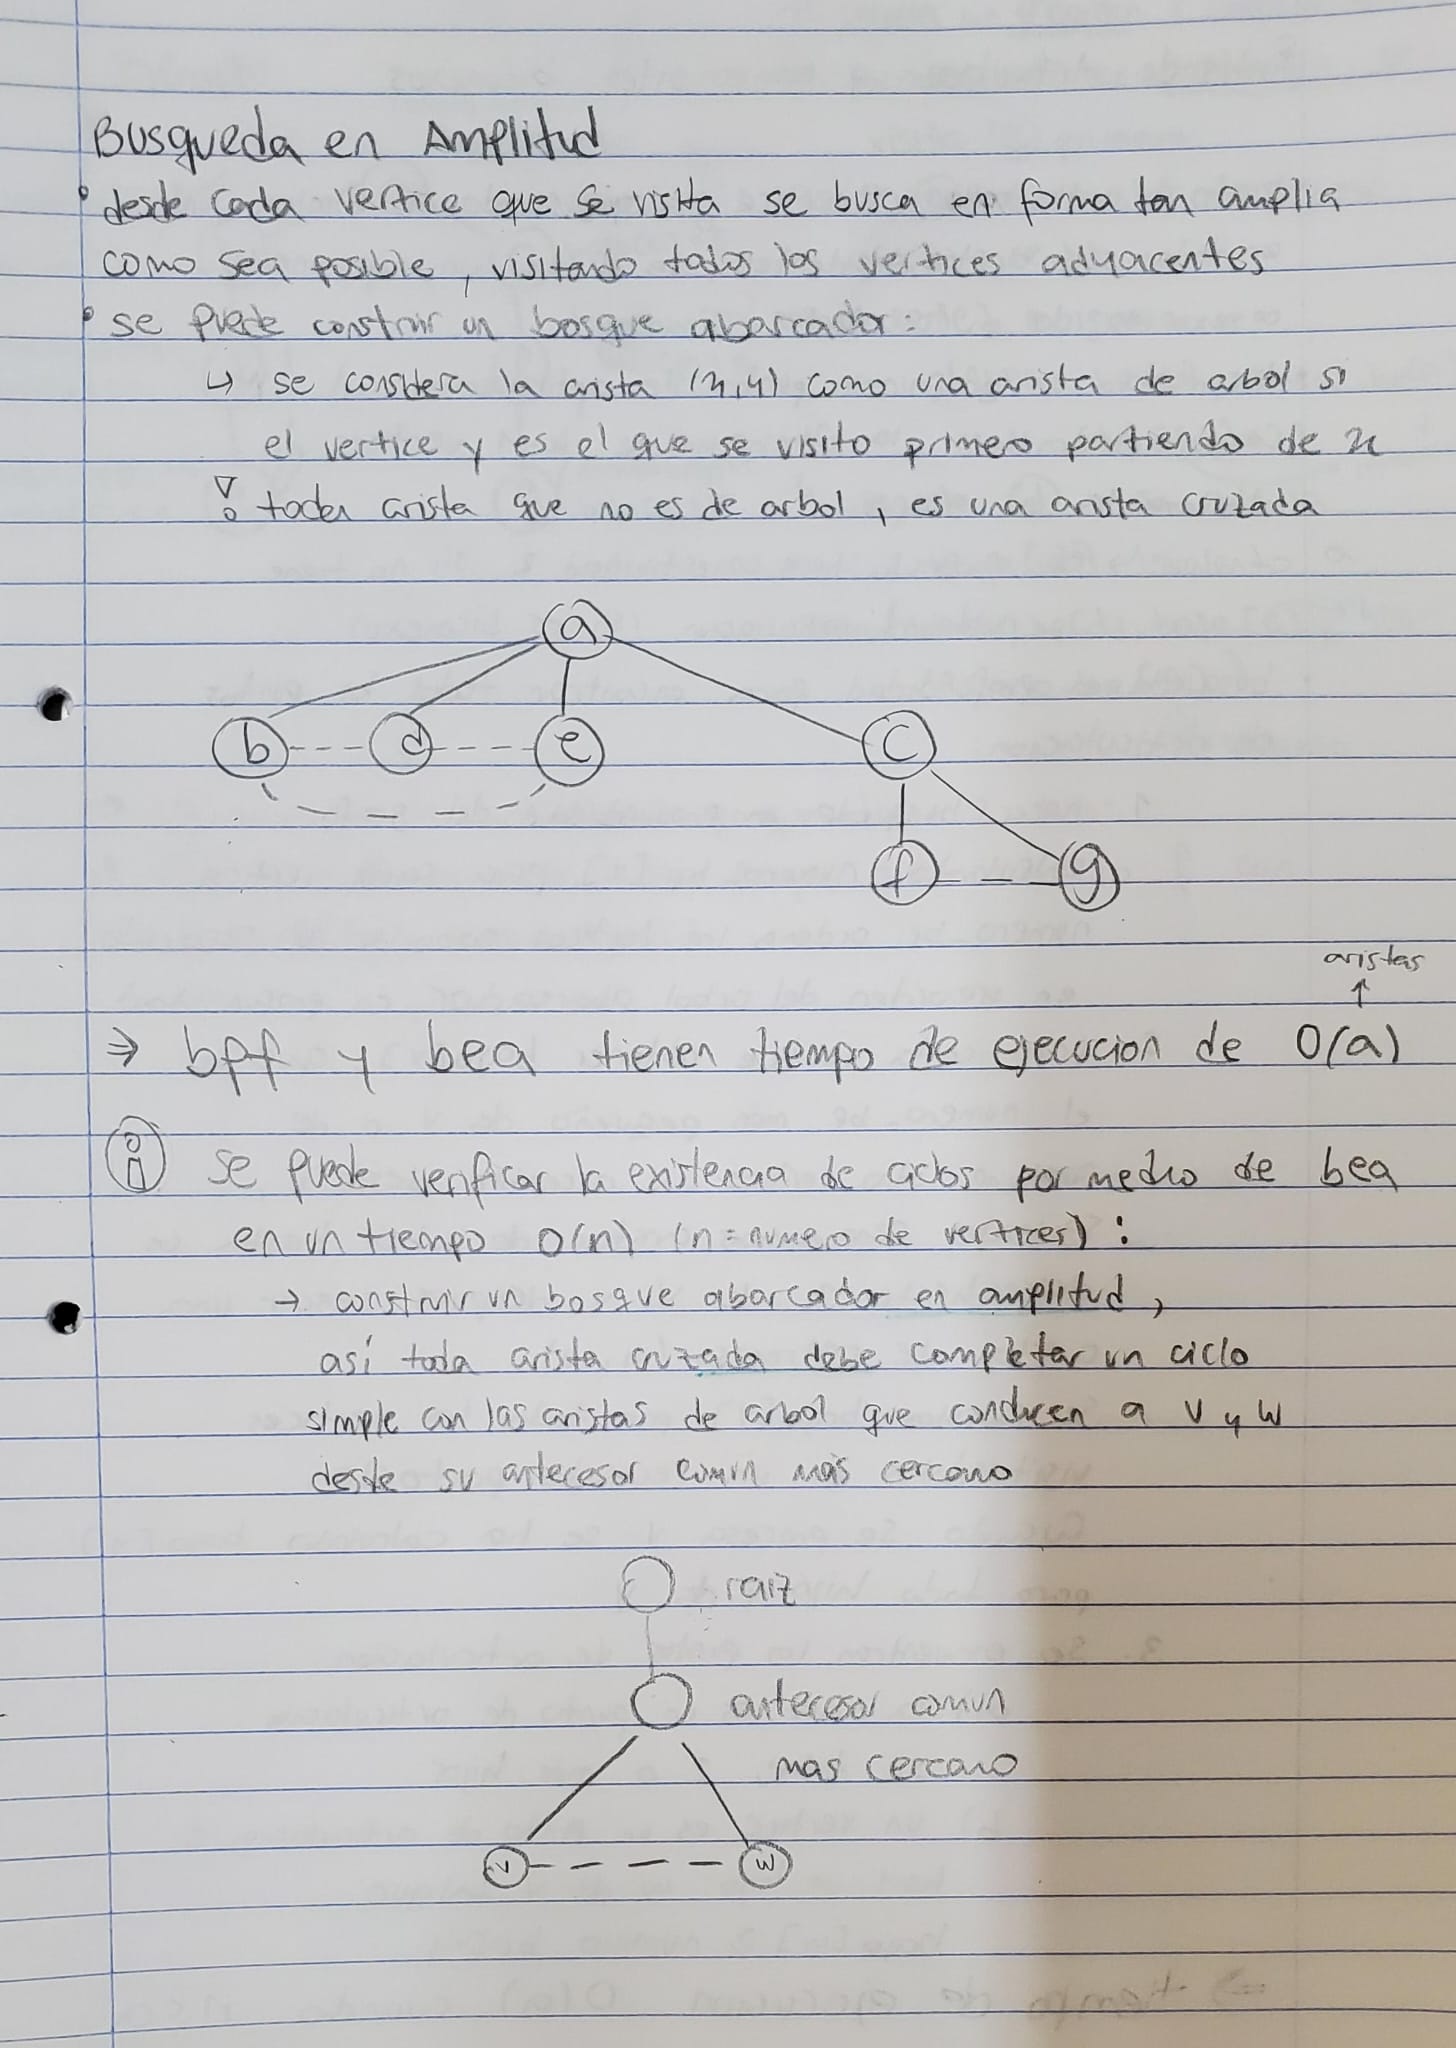 Busqueda en Amplitud
• desde cada vertice que se visita se busca en forma tan amplia
como sea posible, visitando todos los vertices adyacentes
• se puede construir un bosque abarcador:
↳ se considera la arista (x,y) como una arista de arbol si
el vertice y es el que se visito primero partiendo de x
toda arista que no es de arbol, es una arista cruzada
a
b d e c
f g
aristas
↑
⇒ bpf y bea tienen tiempo de ejecucion de O(a)
i se puede verificar la existencia de ciclos por medio de bea
en un tiempo O(n) (n = numero de vertices):
→ construir un bosque abarcador en amplitud,
así toda arista cruzada debe completar un ciclo
simple con las aristas de arbol que conducen a v y w
desde su antecesor comun más cercano
raiz
antecesor comun
mas cercano
v w